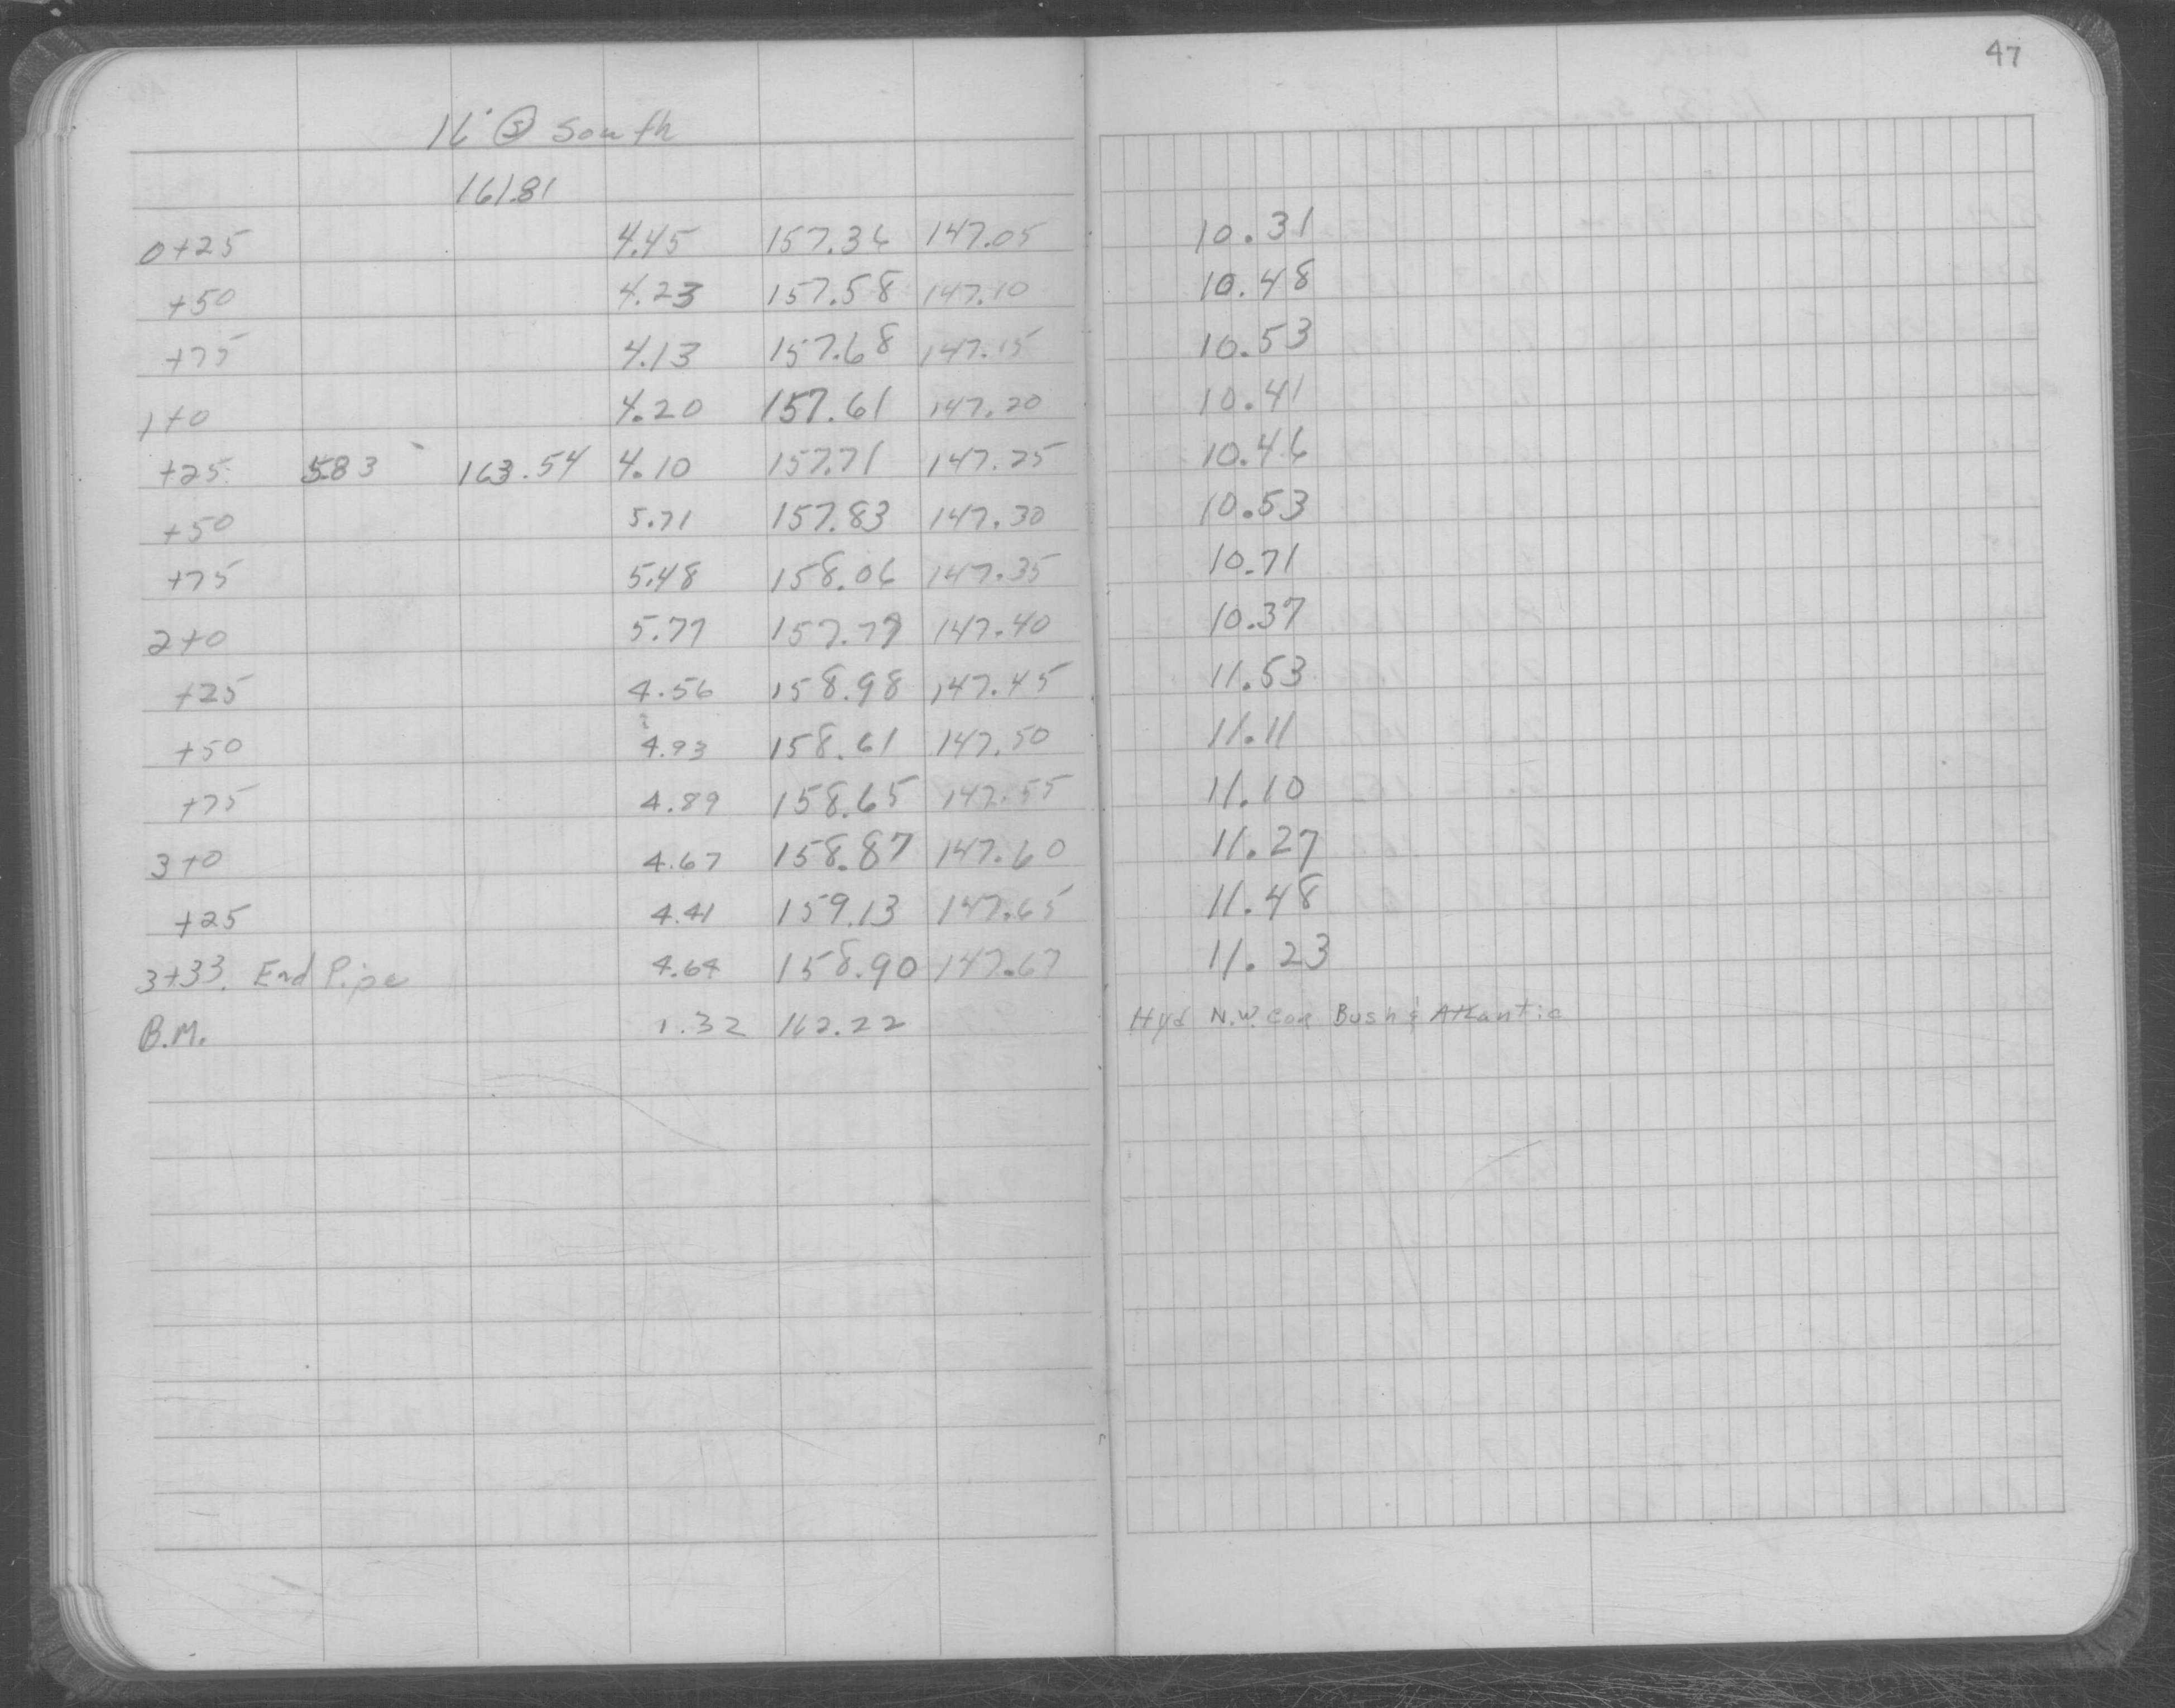 47
16' Ⓢ South
161.81
0+25 4.45 157.36 147.05 10.31
+50 4.23 157.58 147.10 10.48
+75 4.13 157.68 147.15 10.53
1+0 4.20 157.61 147.20 10.41
+25 5.83 163.54 4.10 157.71 147.25 10.46
+50 5.71 157.83 147.30 10.53
+75 5.48 158.06 147.35 10.71
2+0 5.77 157.77 147.40 10.37
+25 4.56 158.98 147.45 11.53
+50 4.93 158.61 147.50 11.11
+75 4.89 158.65 147.55 11.10
3+0 4.67 158.87 147.60 11.27
+25 4.41 159.13 147.65 11.48
3+33. End Pipe 4.64 158.90 147.67 11.23
B.M. 1.32 162.22 Hyd N.W. Cor Bush & Atlantic